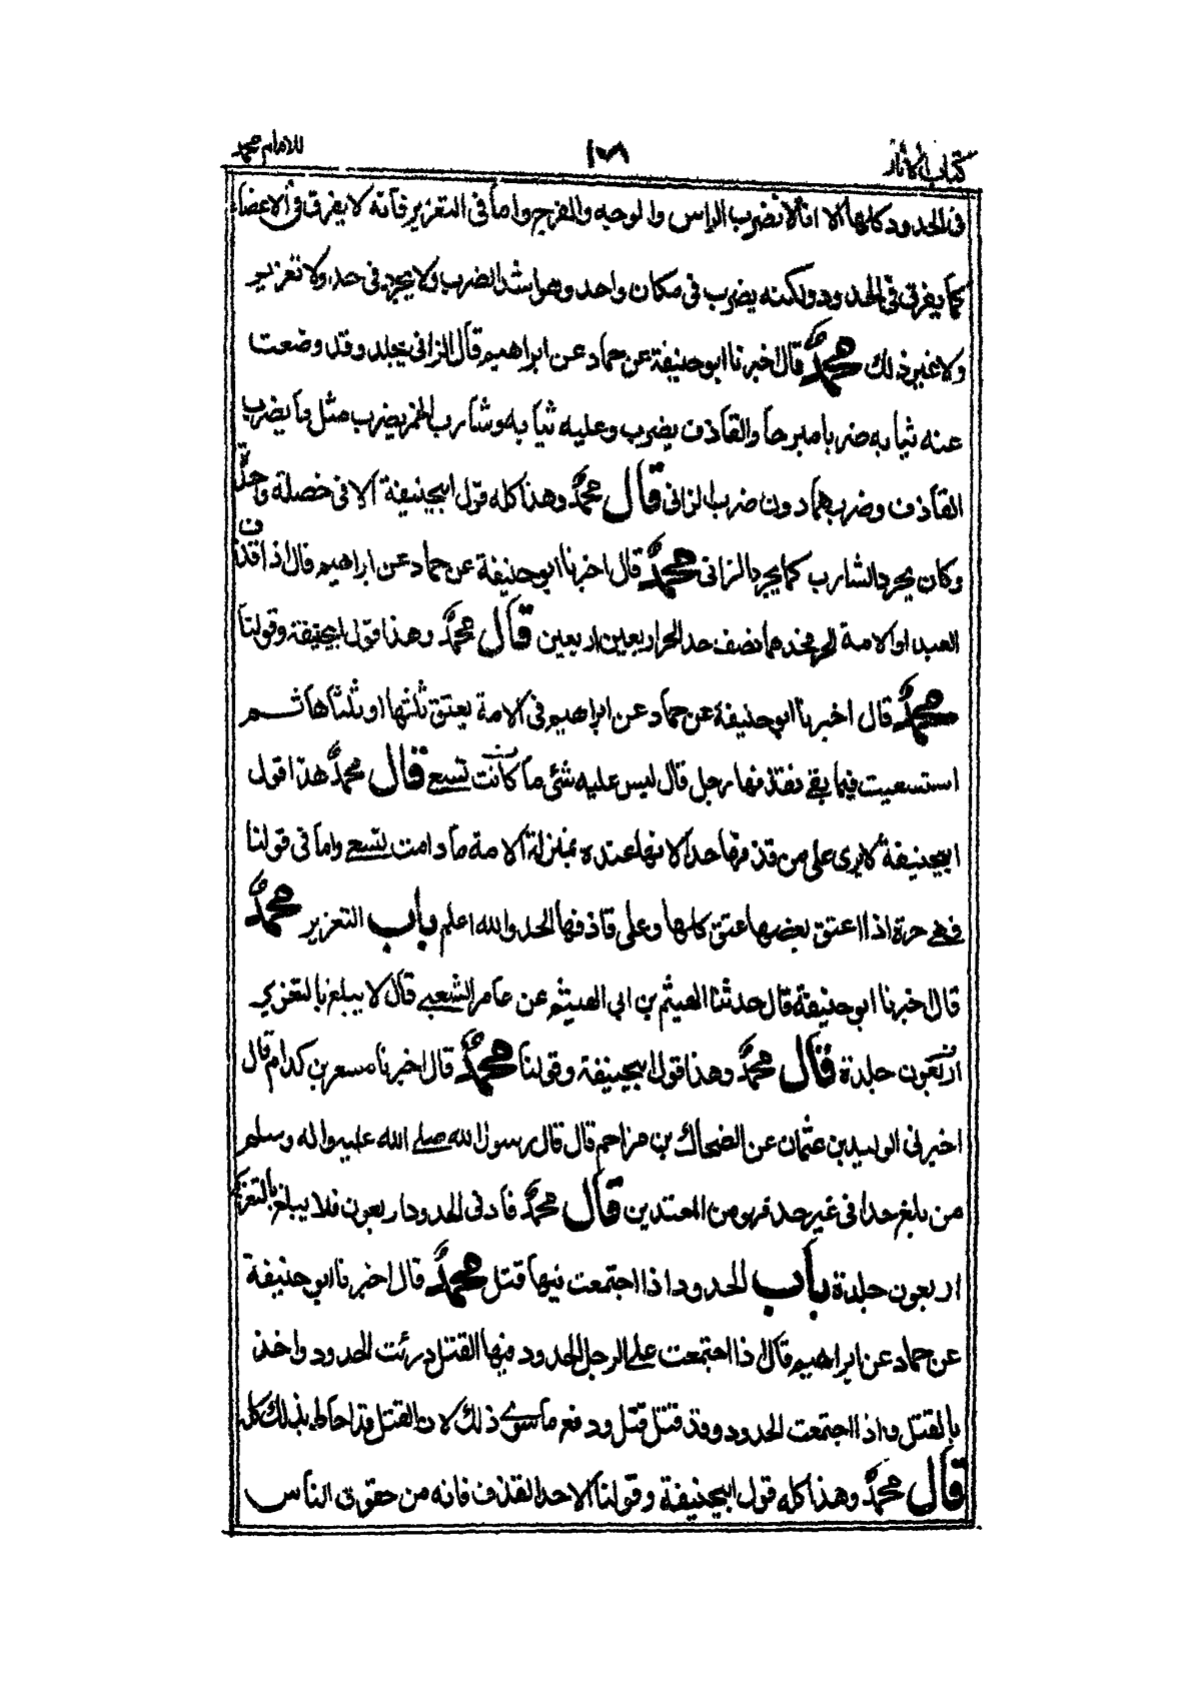 كتاب الآثار ١٠٨ للامام محمد
في الحدود كلها الا انا لا نضرب الراس والوجه والفرج واما في التعزير فانه لا يفرق في الاعضاء
كما يفرق في الحدود ولكنه يضرب في مكان واحد وهو اشد الضرب ولا يجرد في حد ولا تعزير
ولا غير ذلك محمد قال اخبرنا ابو حنيفة عن حماد عن ابراهيم قال الزاني يجلد وقد وضعت
عنه ثيابه ضربا مبرحا والقاذف يضرب وعليه ثيابه وشارب الخمر يضرب مثل ما يضرب
القاذف وضربهما دون ضرب الزاني قال محمد وهذا كله قول ابيحنيفة الا في خصلة واحدة
وكان يجرد الشارب كما يجرد الزاني محمد قال اخبرنا ابو حنيفة عن حماد عن ابراهيم قال اذا قذف
العبد او الامة الحر فحدهما نصف حد الحر اربعين اربعين قال محمد وهذا قول ابيحنيفة وقولنا
محمد قال اخبرنا ابو حنيفة عن حماد عن ابراهيم في الامة يعتق ثلثها او ثلثاها ثم
استسعيت فيما بقي فقذفها رجل قال ليس عليه شئ ما كانت تسعى قال محمد هذا قول
ابيحنيفة لا يرى على من قذفها حدا لانها عنده بمنزلة الامة ما دامت تسعى واما في قولنا
فهي حرة اذا اعتق بعضها عتق كلها وعلى قاذفها الحد والله اعلم باب التعزير محمد
قال اخبرنا ابو حنيفة قال حدثنا الهيثم بن ابي الهيثم عن عامر الشعبي قال لا يبلغ بالتعزير
اربعون جلدة قال محمد وهذا قول ابيحنيفة وقولنا محمد قال اخبرنا مسعر بن كدام قال
اخبرني الوليد بن عثمان عن الضحاك بن مزاحم قال قال رسول الله صلى الله عليه واله وسلم
من بلغ حدا في غير حد فهو من المعتدين قال محمد فادنى الحدود اربعون فلا يبلغ بالتعزير
اربعون جلدة باب الحدود اذا اجتمعت فيها قتل محمد قال اخبرنا ابو حنيفة
عن حماد عن ابراهيم قال اذا اجتمعت على الرجل الحدود فيها القتل درئت الحدود واخذ
بالقتل واذا اجتمعت الحدود وقد قتل قتل ودفع ما سوى ذلك لان القتل قد احاط بذلك كله
قال محمد وهذا كله قول ابيحنيفة وقولنا الا حد القذف فانه من حقوق الناس